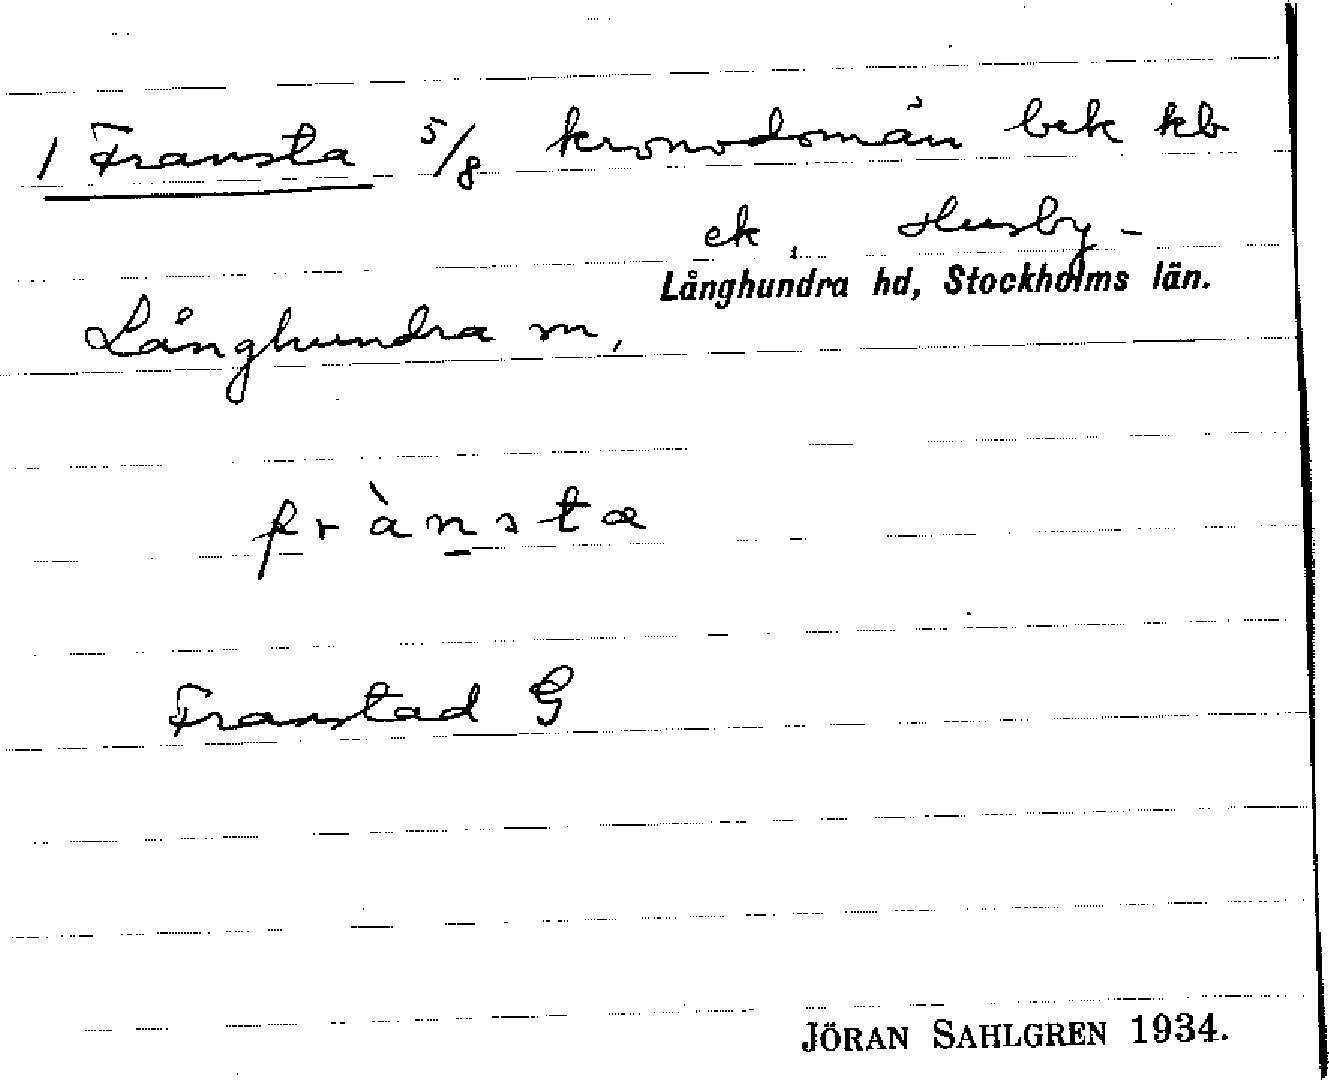 1 Fransta 5/8 kronodomän bek kb
ek, Husby-
Långhundra hd, Stockholms län.
Långhundra sn,
frànsta
Franstad G
JÖRAN SAHLGREN 1934.